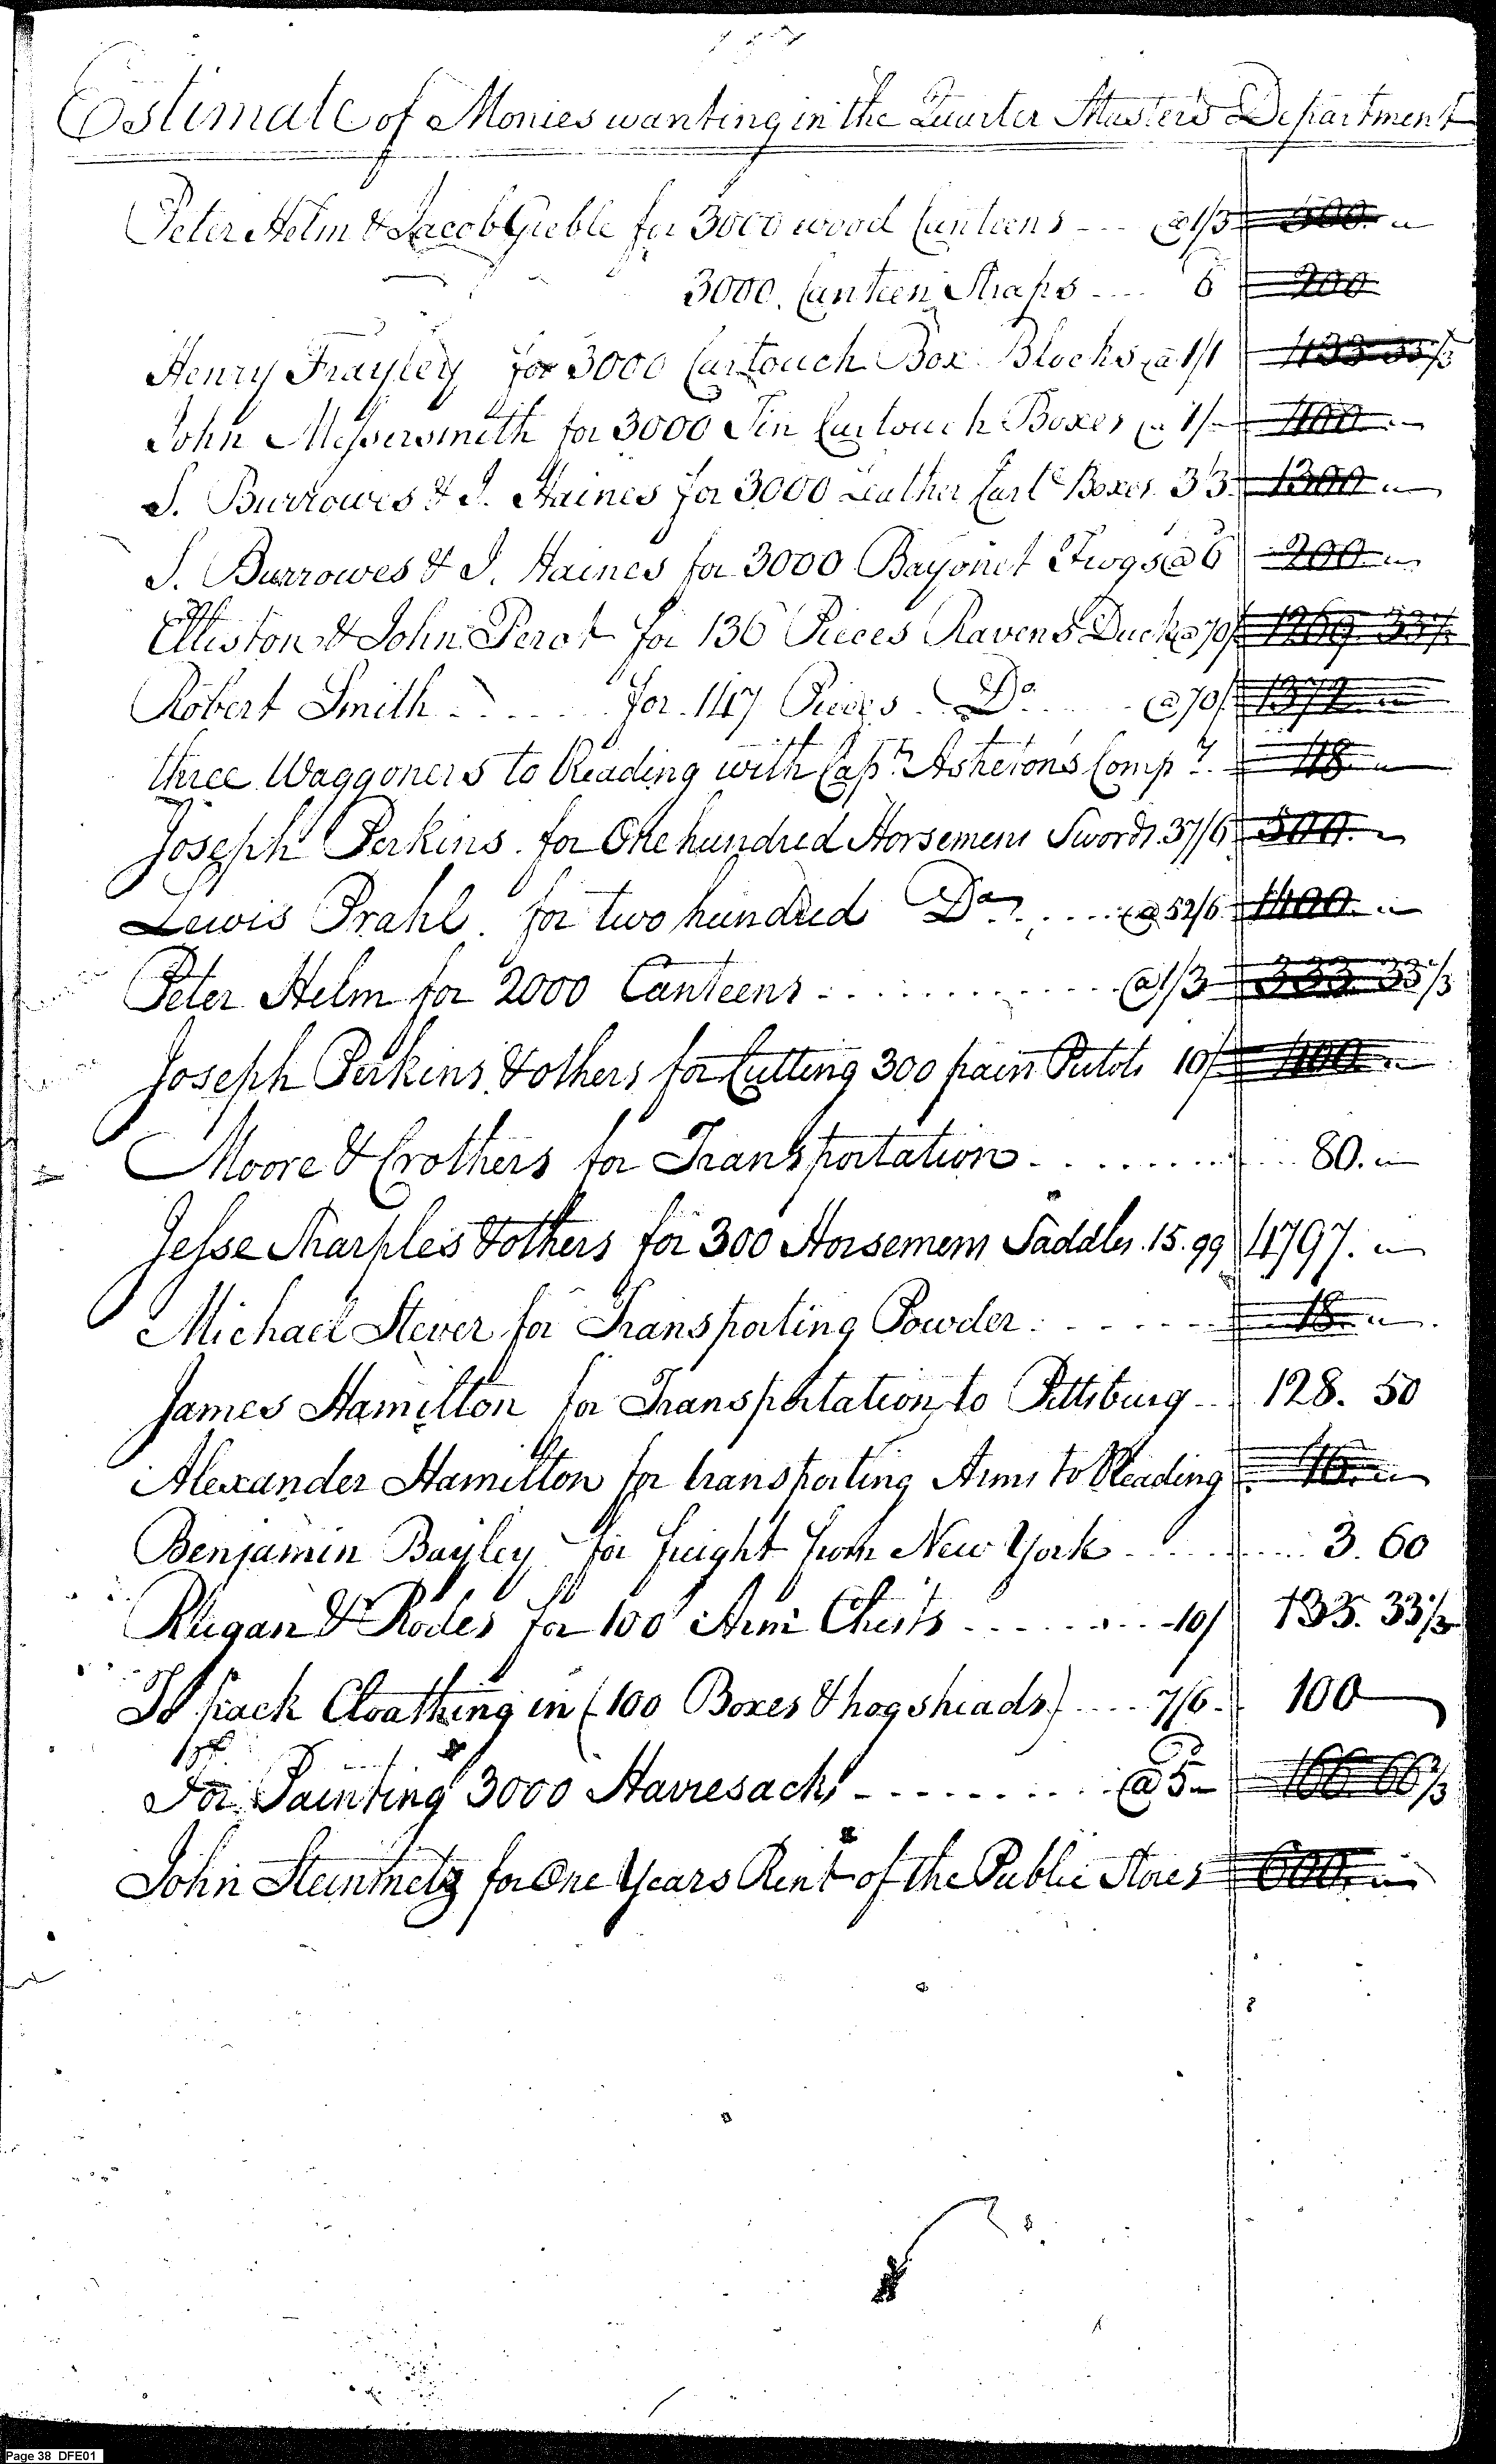 Estimate of Monies wanting in the Quarter Master's Department
Peter Helm & Jacob Gieble for 3000 wood Canteens --- @ 1/3 500. "
3000. Canteen Straps .... 6 200
Henry Frayley for 3000 Cartouch Box Blocks @ 1/1 433 33⅓
John Messersmith for 3000 Tin Cartouch Boxes @ 1/- 400. -
S. Burrowes & J. Haines for 3000 Leather Cart.e Boxes. 3/3. 1300 "
S. Burrowes & J. Haines for 3000 Bayonet Frogs @ 6 200 "
Elliston & John Perot for 136 Pieces Ravens Duck @ 70/ 1269 33⅓
Robert Smith ..... for 147 Pieces Do. ... @ 70/ 1372 "
three Waggoners to Reading with Capn. Asheton's Compy. 48 "
Joseph Perkins for One hundred Horsemens Swords. 37/6 500. "
Lewis Prahl for two hundred Do. .... @ 52/6 1400. "
Peter Helm for 2000 Canteens ............ @ 1/3 333 33⅓
Joseph Perkins & others for Cutting 300 pairs Pistols 10/ 400 "
Moore & Crothers for Transportation ......... 80. "
Jesse Sharples & others for 300 Horsemens Saddles. 15.99 4797. "
Michael Stever for Transporting Powder ...... 18. "
James Hamilton for Transportation to Pittsburg .. 128. 50
Alexander Hamilton for transporting Arms to Reading 16. "
Benjamin Bayley for freight from New York ....... 3. 60
Rugan & Rodes for 100 Arm Chests ......... 10/ 133. 33⅓
To pack Cloathing in (100 Boxes & hogsheads) .... 7/6. 100
For Painting 3000 Havresacks ......... @ 5 166 66⅔
John Steinmetz for One Years Rent of the Public Stores 600. "
Page 38 DFE01